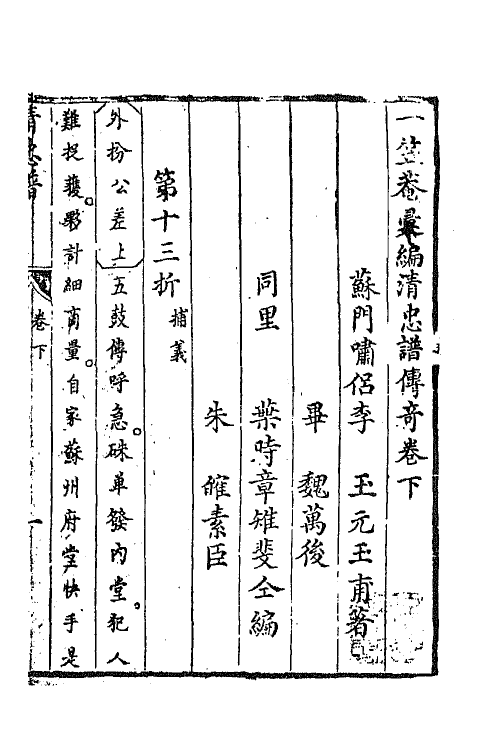 一笠菴彙編清忠譜傳奇卷下
蘇門嘯侶李玉元玉甫著
畢魏萬後
同里葉時章雉斐仝編
朱㿥素臣
第十三折捕義
外扮公差上五鼓傳呼急。硃單發內堂。犯人
難捉獲。夥計細商量。自家蘇州府堂快手是
清忠譜
卷下
一